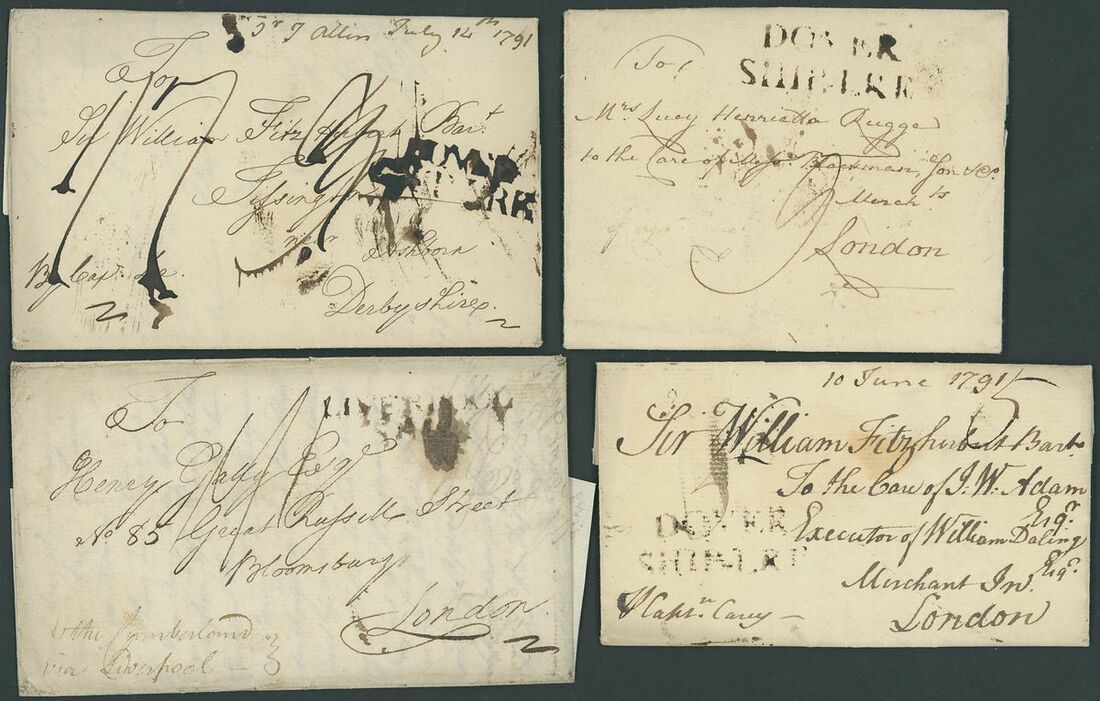 July 14th 1791
To
Sir William Fitz Bart
Tissington
near Ashborn
Derbyshire
By Capt
DOVER
SHIP-LRE
To
Mrs Lucy Henrietta Rugge
to the Care of Messrs Son & Co
Merchts
London
LIVERPOOL
To
Henry Esqr
No 85 Great Russell Street
Bloomsbury
London
the Cumberland
via Liverpool
10 June 1791
Sir William Fitzherbert Bart
To the Care of J. W. Adam
Esqr
Executor of William Daling
Esqr
Merchant In
London
DOVER
SHIP-LRE
Captn Carey